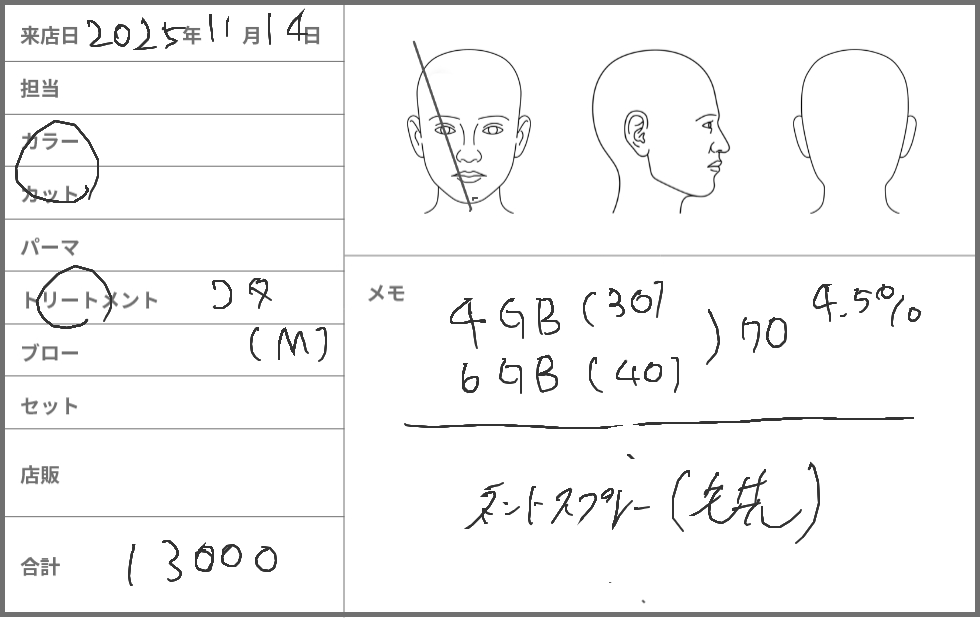 来店日 2025年11月14日
担当
カラー
カット
パーマ
トリートメント コタ
(M)
ブロー
セット
店販
合計 13000
メモ
4GB (30)
6GB (40)
) 70 4.5%
スプレー (毛先)